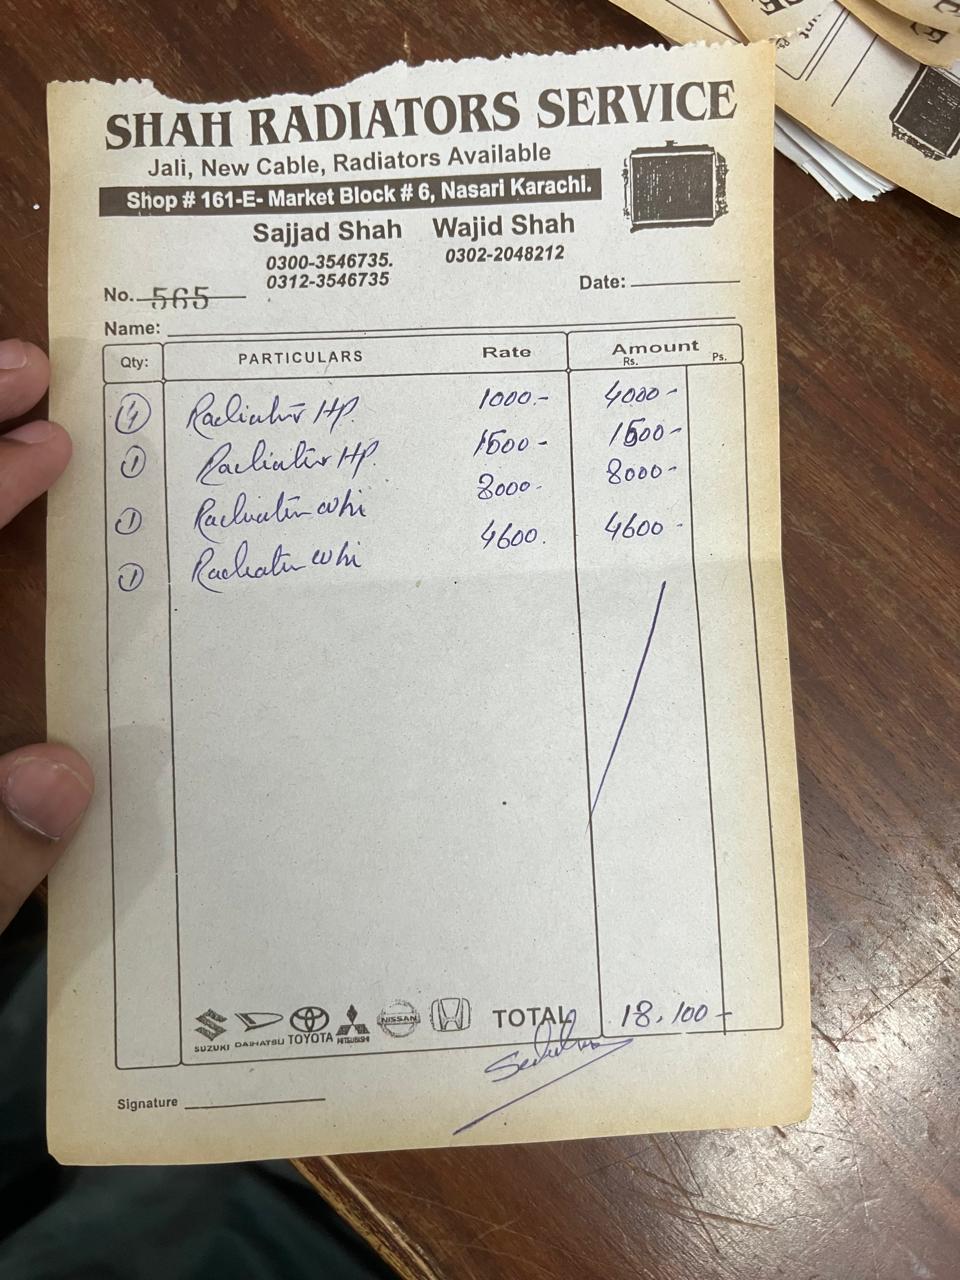 SHAH RADIATORS SERVICE
Jali, New Cable, Radiators Available
Shop # 161-E- Market Block # 6, Nasari Karachi.
Sajjad Shah Wajid Shah
0300-3546735. 0302-2048212
0312-3546735
No. 565 Date:
Name:
Qty: PARTICULARS Rate Amount
Rs. Ps.
4 Radiator HP. 1000.- 4000-
1 Radiator HP. 1500- 1500-
1 Radiator whi 8000- 8000-
1 Radiator whi 4600. 4600-
SUZUKI DAIHATSU TOYOTA MITSUBISHI NISSAN TOTAL 18,100-
Signature